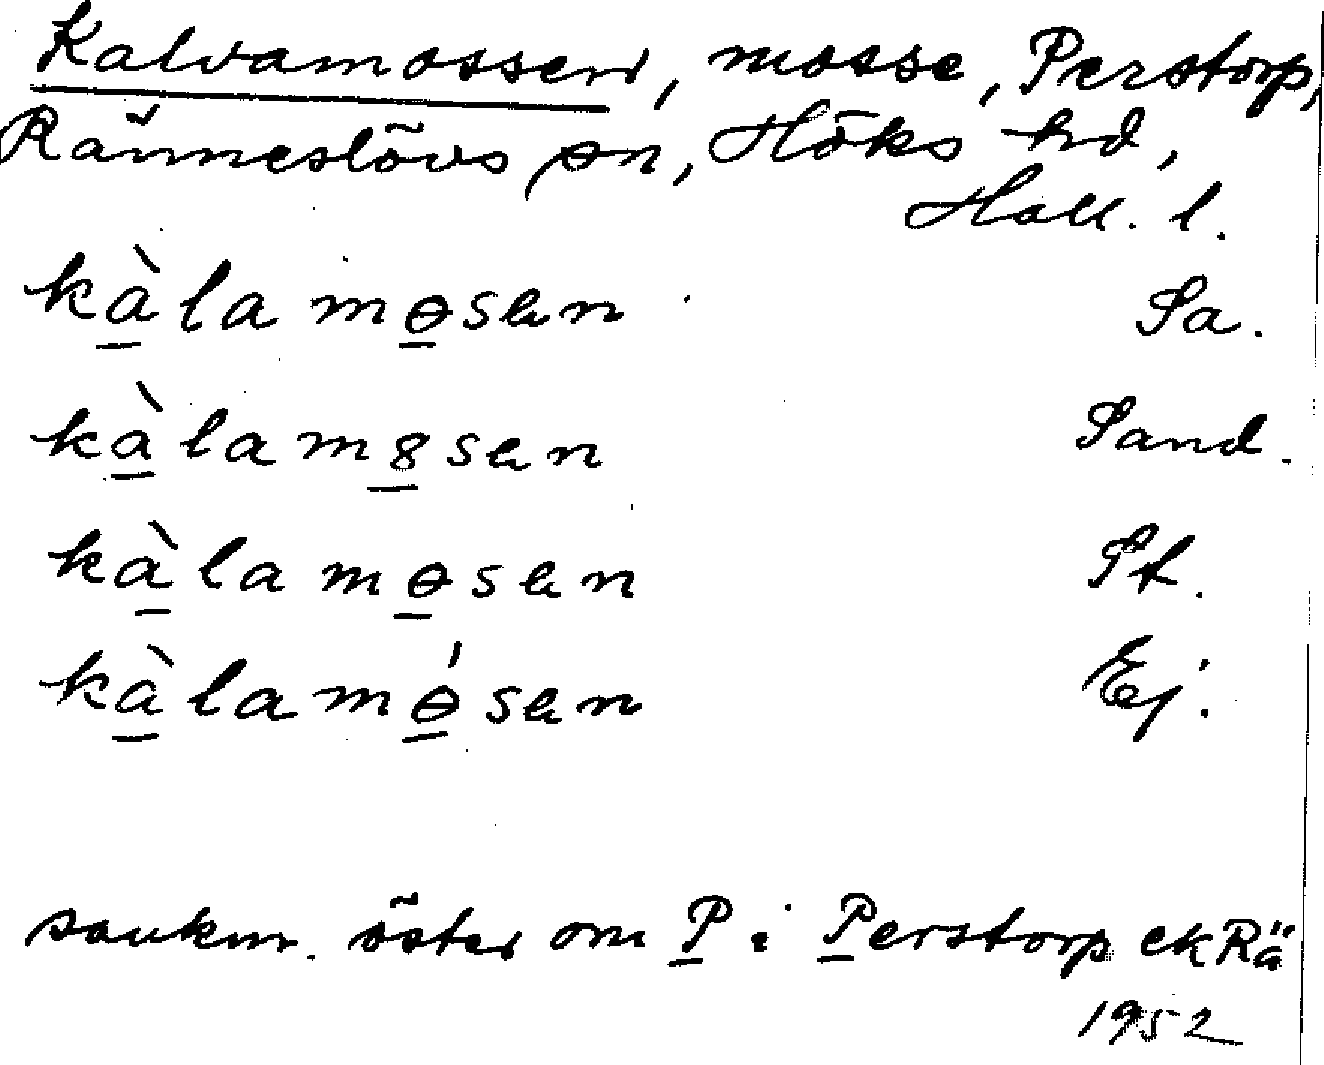 Kalvamossen, mosse, Perstorp,
Ränneslövs sn, Höks hd,
Hall. l.
kàlamɵsen Sa.
kàlam8sen Sand.
kàlamɵsen St.
kàlamɵ́sen Ej.
sankm. öster om P i Perstorp ekRä
1952